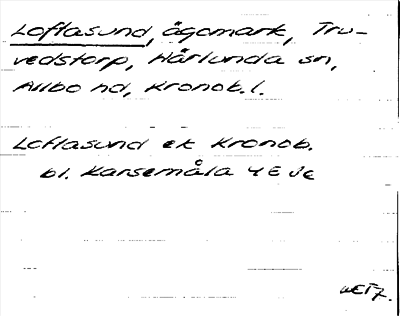 Loftasund, ägomark, Tru-
vedstorp, Härlunda sn,
Allbo hd, Kronob. l.
Loftasund ek Kronob.
bl. Karsemåla 4 E Je